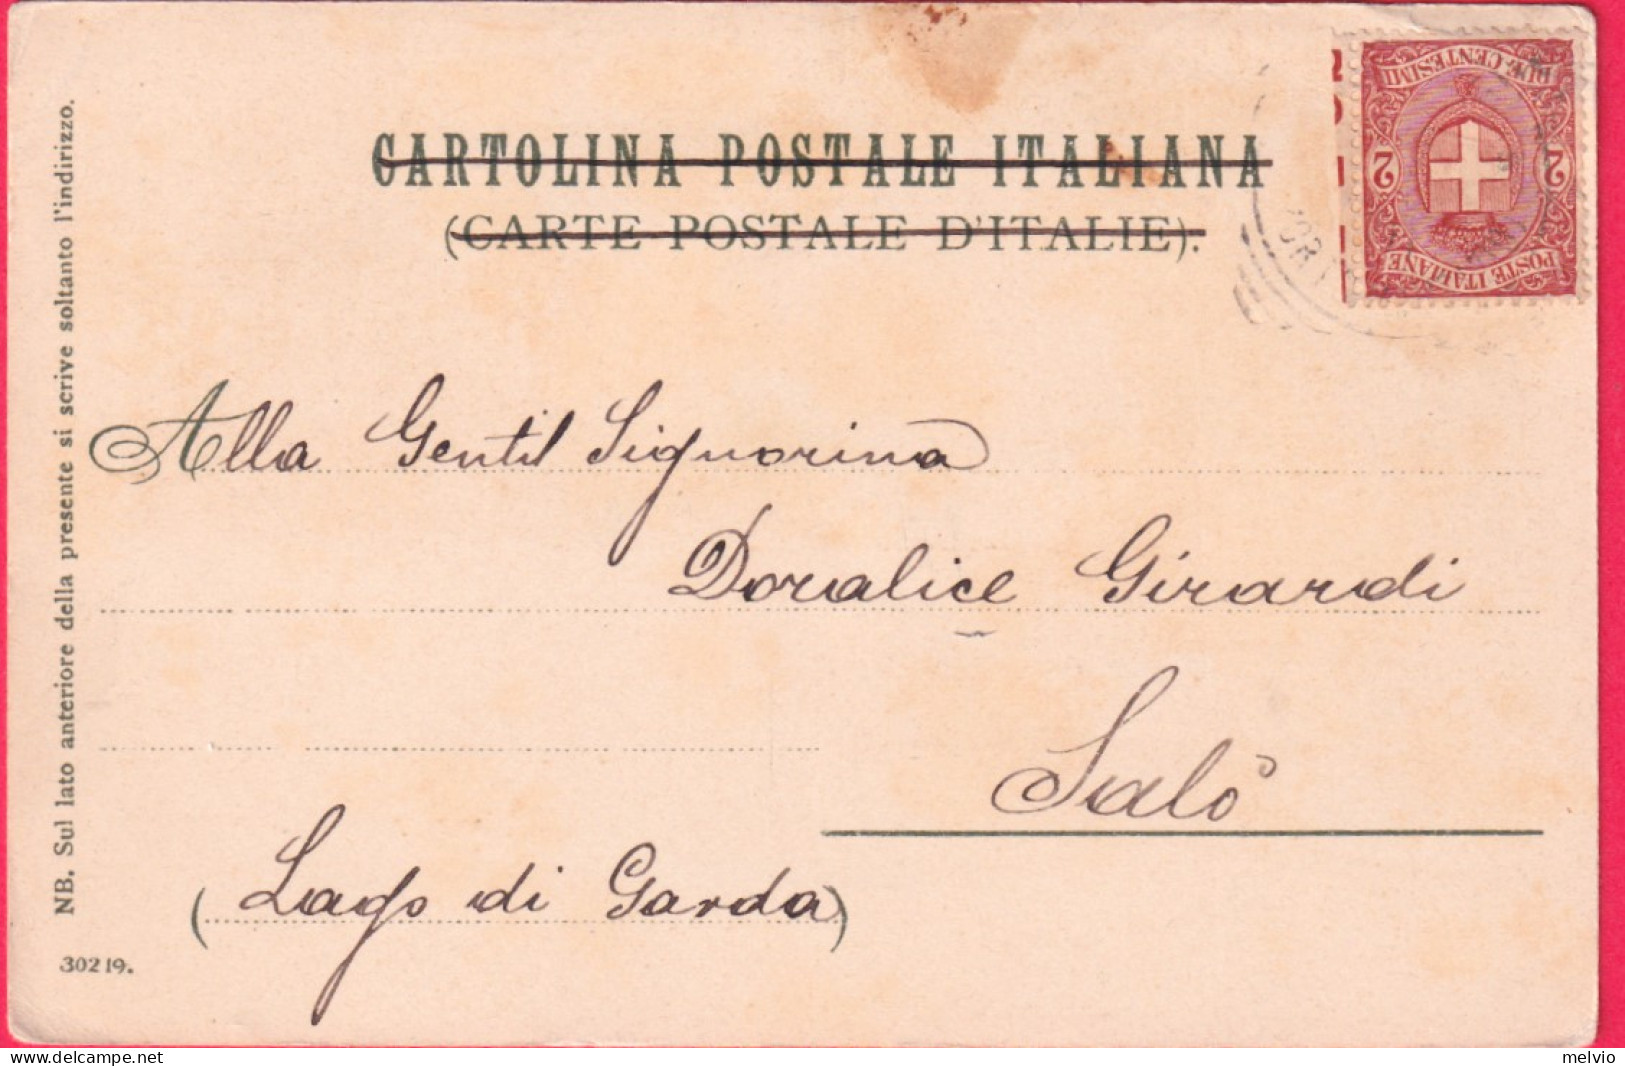 CARTOLINA POSTALE ITALIANA
(CARTE POSTALE D'ITALIE).
DUE CENTESIMI
2 2
POSTE ITALIANE
NB. Sul lato anteriore della presente si scrive soltanto l'indirizzo.
Alla Gentil Signorina
Doralice Girardi
Salò
(Lago di Garda)
30219.
melvio